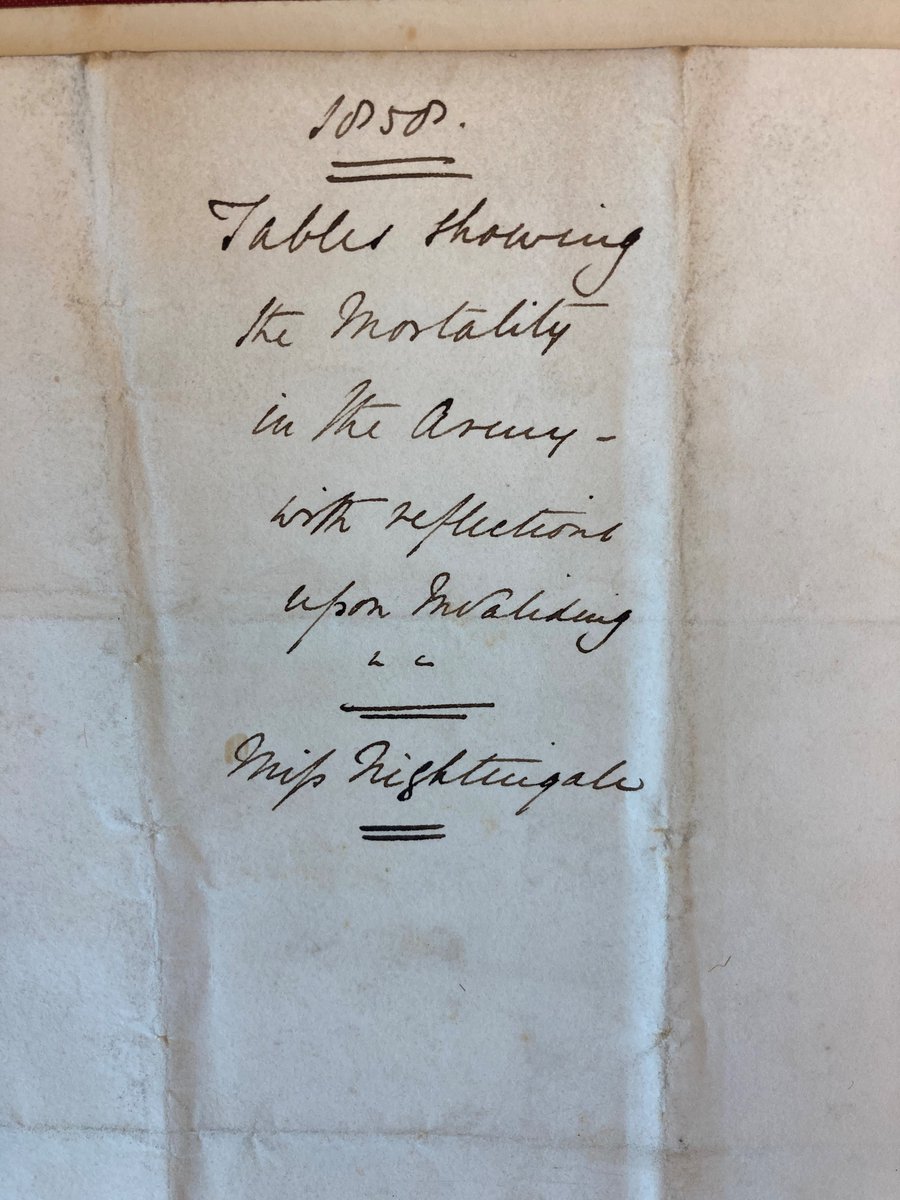 1858.
Tables showing
the Mortality
in the Army –
with reflections
upon Invaliding
" "
Miſs Nightingale